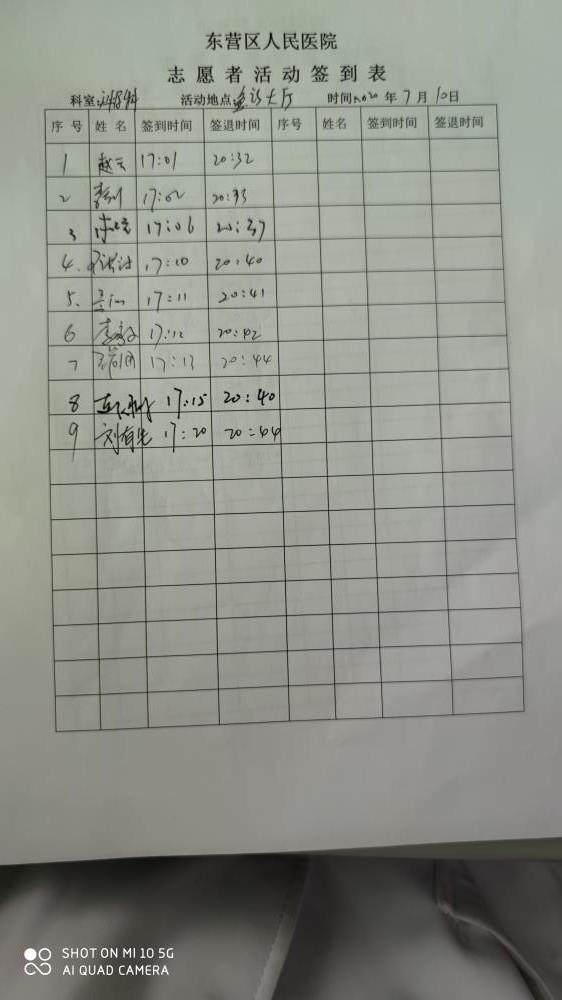 东营区人民医院
志愿者活动签到表
科室: 活动地点 大厅 时间2020年7月10日
序号 姓名 签到时间 签退时间 序号 姓名 签到时间 签退时间
1 赵云 17:01 20:32
2 17:02 20:33
3 17:06 20:37
4. 17:10 20:40
5. 17:11 20:41
6 17:12 20:42
7 17:13 20:44
8 17:15 20:40
9 刘有先 17:20 20:44
SHOT ON MI 10 5G
AI QUAD CAMERA